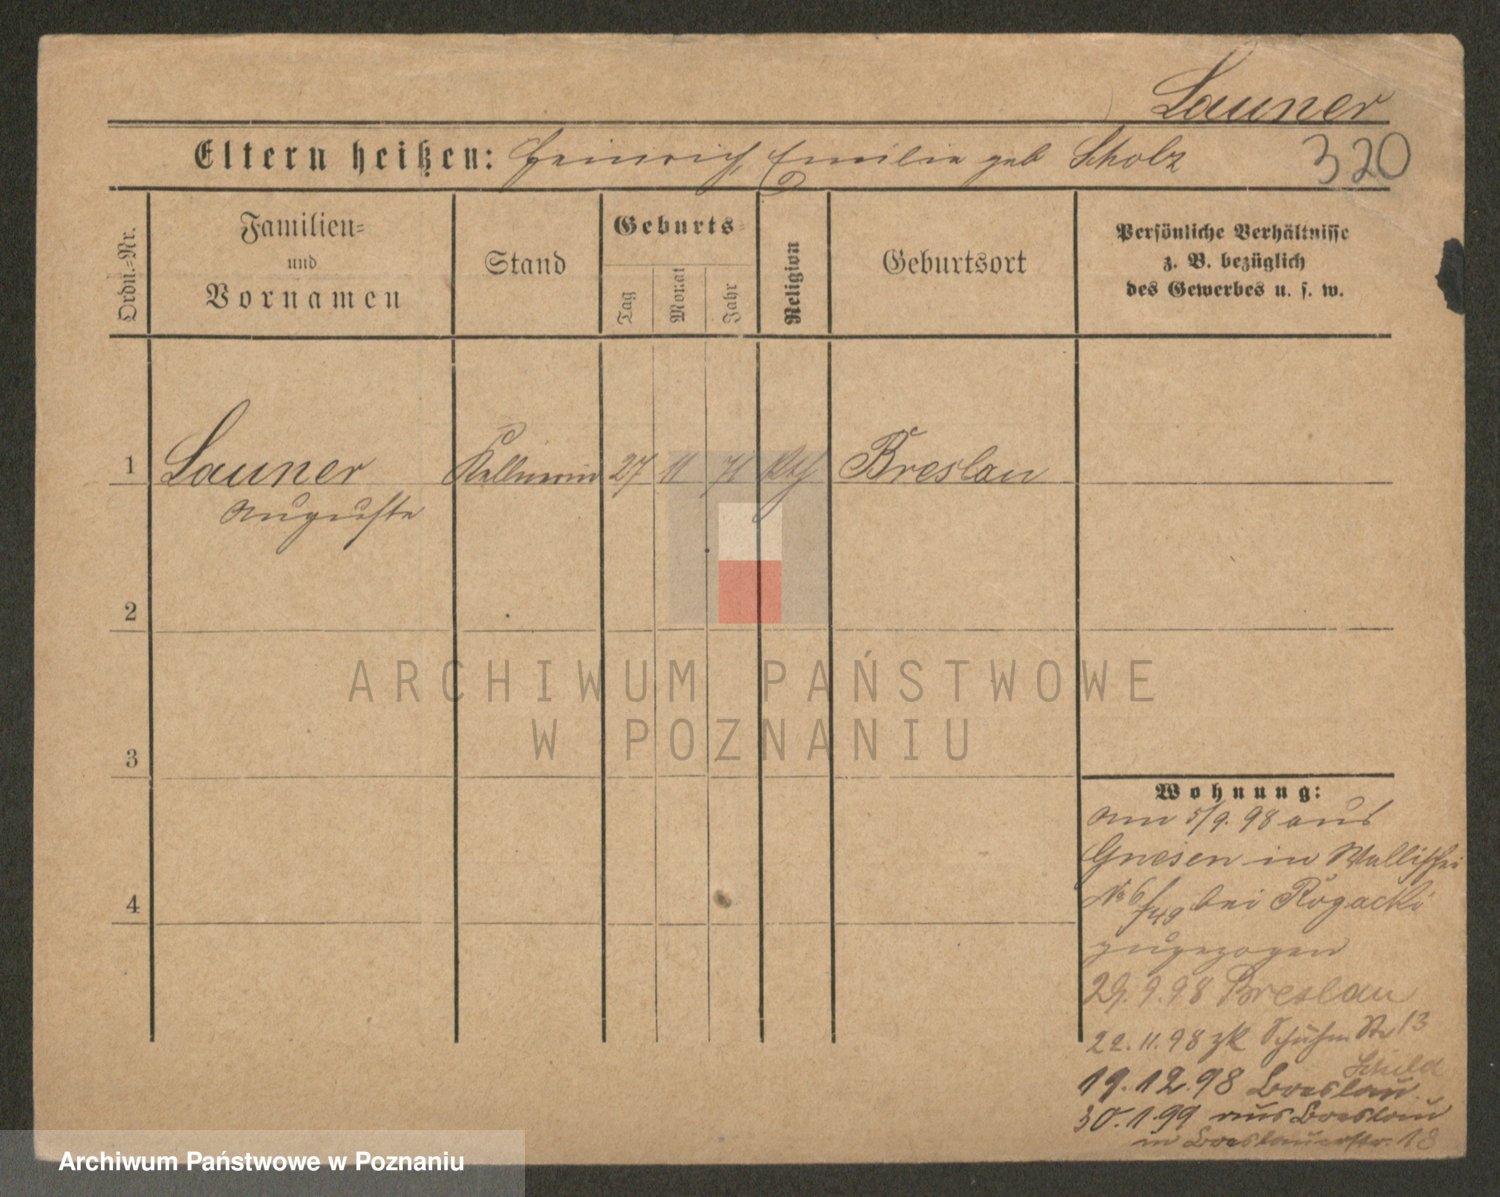 Launer
Eltern heißen: Heinrich, Emilie geb Scholz
320
Ordn.-Nr.
Familien-
und
Vornamen
Stand
Geburts-
Tag
Monat
Jahr
Religion
Geburtsort
Persönliche Verhältnisse
z. B. bezüglich
des Gewerbes u. s. w.
1 Launer Kellnerin 27 11 71 kth Breslau
Auguste
2
3
4
ARCHIWUM PAŃSTWOWE
W POZNANIU
Wohnung:
am 5/9. 98 aus
Gnesen in Wallischei
No 6 bei Rogacki
zugezogen
29. 9. 98 Breslau
22. 11. 98 zk Schuhm Str 13
Schuld
19. 12. 98 Breslau.
30. 1. 99 aus Breslau
in Breslauerstr. 18
Archiwum Państwowe w Poznaniu